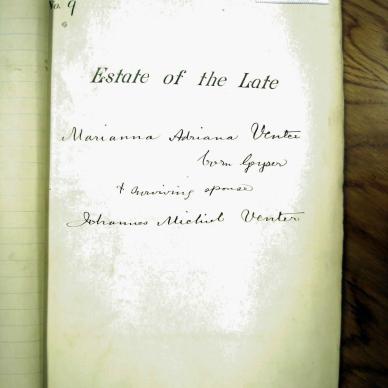 No. 9
Estate of the Late
Marianna Adriana Venter
born Gyser
& surviving spouse
Johannes Michiel Venter